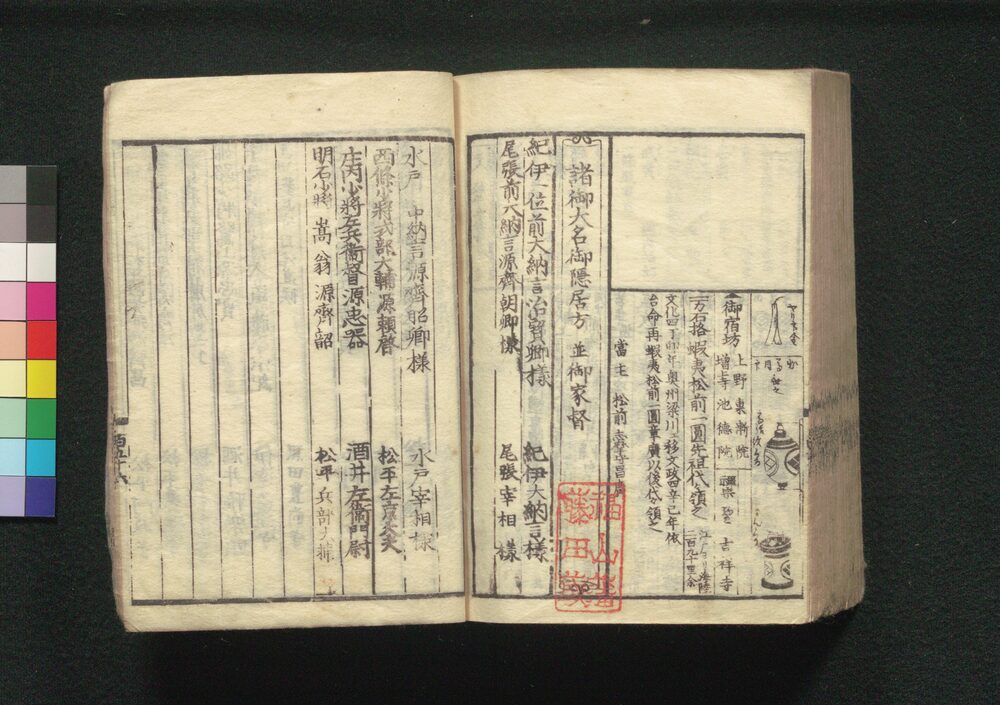 御宿坊
上野 東漸院
増上寺 池徳院
禅宗 吉祥寺
一万石格 蝦夷松前一圓先祖代々領之
江戸ヨリ海陸
二百九十里余
文化四丁卯年奥州梁川江移文政四辛巳年依
台命再蝦夷松前一圓章廣以後代々領之
當主 松前 昌廣
諸御大名御隠居方 並御家督
紀伊一位前大納言治寳卿様 紀伊大納言様
尾張前大納言源齊朝卿様 尾張宰相様
水戸 中納言源齊昭卿様 水戸宰相様
西條少将式部大輔源頼啓 松平左京大夫
庄内少将左兵衛督源忠器 酒井左衛門尉
明石少将 嵩翁源齊韶 松平兵部大輔
福山藩
藤田